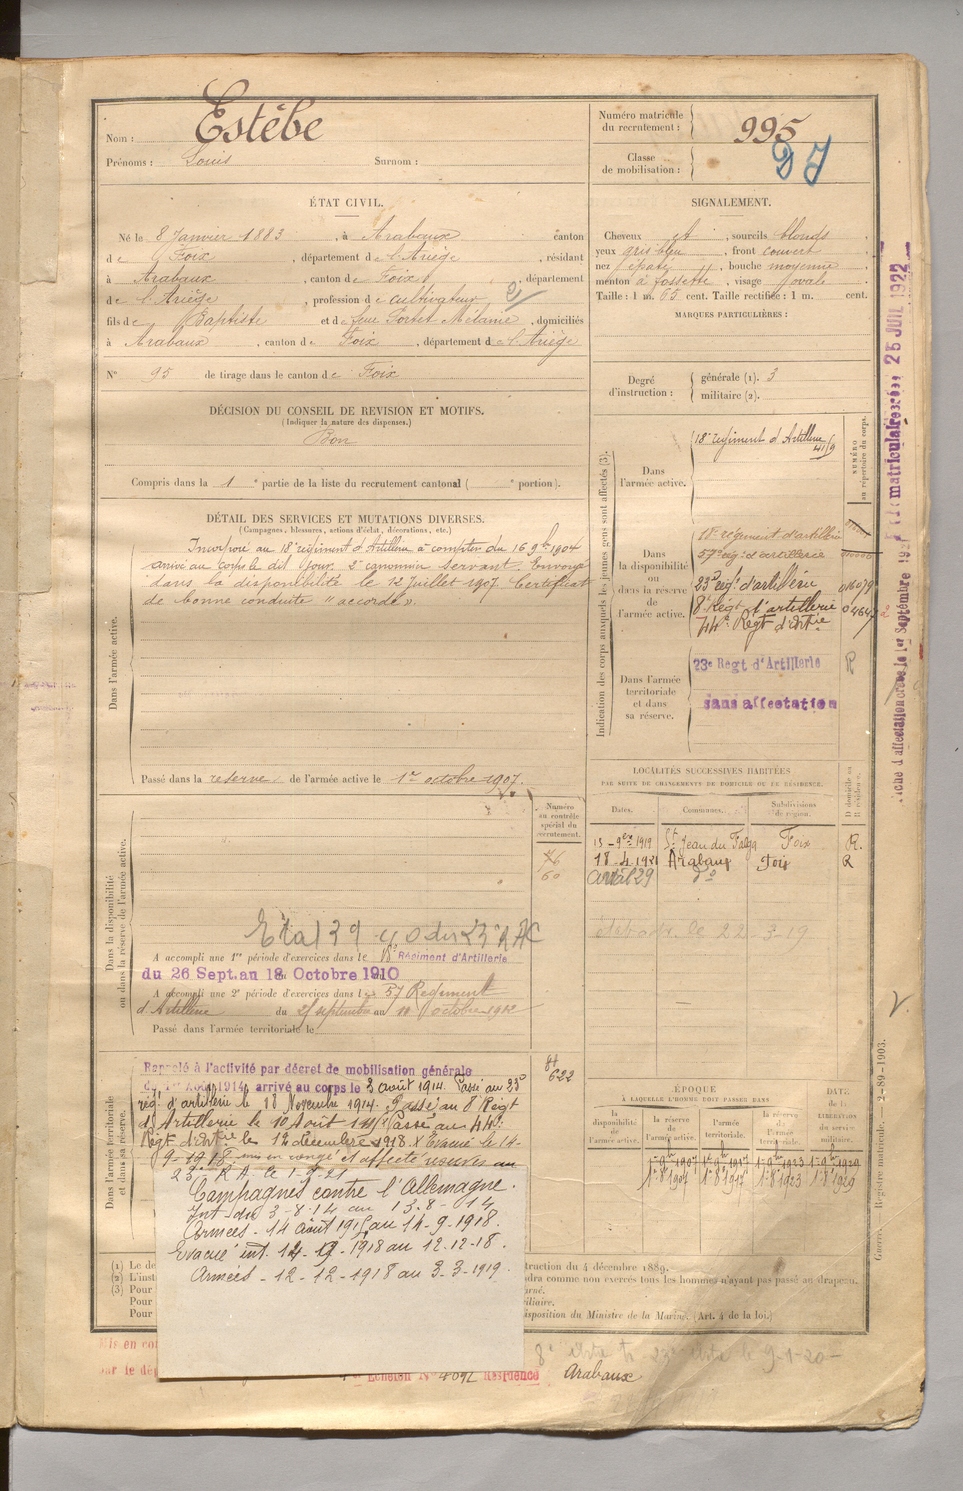 Nom : Estèbe
Prénoms : Louis Surnom :
Numéro matricule du recrutement : 995
Classe de mobilisation :
ÉTAT CIVIL.
Né le 8 Janvier 1883, à Arabaux canton
de Foix, département de l'Ariège, résidant
à Arabaux, canton de Foix, département
de l'Ariège, profession de cultivateur
fils de Baptiste et de feue Fortet Mélanie, domiciliés
à Arabaux, canton de Foix, département de l'Ariège
N° 95 de tirage dans le canton de Foix
DÉCISION DU CONSEIL DE REVISION ET MOTIFS.
(Indiquer la nature des dispenses.)
Bon
Compris dans la 1e partie de la liste du recrutement cantonal ( e portion).
SIGNALEMENT.
Cheveux et, sourcils blonds
yeux gris bleu, front couvert
nez épaté, bouche moyenne
menton à fossette, visage ovale
Taille : 1 m. 65 cent. Taille rectifiée : 1 m. cent.
MARQUES PARTICULIÈRES :
Degré d'instruction : générale (1). 3
militaire (2).
DÉTAIL DES SERVICES ET MUTATIONS DIVERSES.
(Campagnes, blessures, actions d'éclat, décorations, etc.)
Dans l'armée active.
Incorporé au 18e régiment d'Artillerie à compter du 16 9bre 1904
arrivé au corps le dit jour. 2e canonnier servant. Envoyé
dans la disponibilité le 12 Juillet 1907. Certificat
de bonne conduite "accordé".
Passé dans la réserve de l'armée active le 1er octobre 1907.
Indication des corps auxquels les jeunes gens sont affectés (3).
NUMÉRO au répertoire du corps.
Dans l'armée active.
18e régiment d'Artillerie
Dans la disponibilité ou dans la réserve de l'armée active.
18e régiment d'artillerie
57e rég. d'artillerie
23e régt d'artillerie
8e Régt d'artillerie
44e Régt d'Artie
Dans l'armée territoriale et dans sa réserve.
23e Regt d'Artillerie R
sans affectation
LOCALITÉS SUCCESSIVES HABITÉES
PAR SUITE DE CHANGEMENTS DE DOMICILE OU DE RÉSIDENCE.
D domicile ou R résidence.
Dates. Communes. Subdivisions de région.
St Jean du Falga Foix R.
18-4-1921 Arabaux Foix R
avril 29 do
le 22-3-19
Dans la disponibilité ou dans la réserve de l'armée active.
Numéro au contrôle spécial du recrutement.
A accompli une 1re période d'exercices dans le 18e Régiment d'Artillerie
du 26 Sept. au 18 Octobre 1910
A accompli une 2e période d'exercices dans le 57 Régiment
d'Artillerie du septembre au octobre 1912
Passé dans l'armée territoriale le
Dans l'armée territoriale et dans sa réserve.
622
Rappelé à l'activité par décret de mobilisation générale
du 1er Août 1914, arrivé au corps le 3 août 1914. Passé au 23e
rég. d'artillerie le 18 Novembre 1914. Passé au 8e Régt
d'Artillerie le 10 Août Passé au 44e
Régt d'Artie le 12 décembre 1918. X Evacué le 14-
9-1918 mis en congé et affecté réserves au
23e R.A. le 1-9-21
Campagnes contre l'Allemagne.
Int. du 3-8-14 au 13-8-
Armées - 14 août 1915 au 14-9-1918.
Evacué int. 14-9-1918 au 12-12-18.
Armées - 12-12-1918 au 3-3-1919.
ÉPOQUE
A LAQUELLE L'HOMME DOIT PASSER DANS
la disponibilité de l'armée active.
la réserve de l'armée active.
l'armée territoriale.
la réserve de l'armée territoriale.
DATE de la LIBÉRATION du service militaire.
1-9bre 1907 1-9bre 1917 1-9bre 1923 1-9bre 1929
1-8-1907 1-8-1917 1-8-1923 1-8-1929
(1) Le de
(2) L'inst
(3) Pour
Pour
Pour
struction du 4 décembre 1889.
ndra comme non exercés tous les hommes n'ayant pas passé au drapeau.
urné.
xiliaire.
isposition du Ministre de la Marine. (Art. 4 de la loi.)
Echelon N° Résidence Arabaux
Guerre. Registre matricule. 2-89-1903.